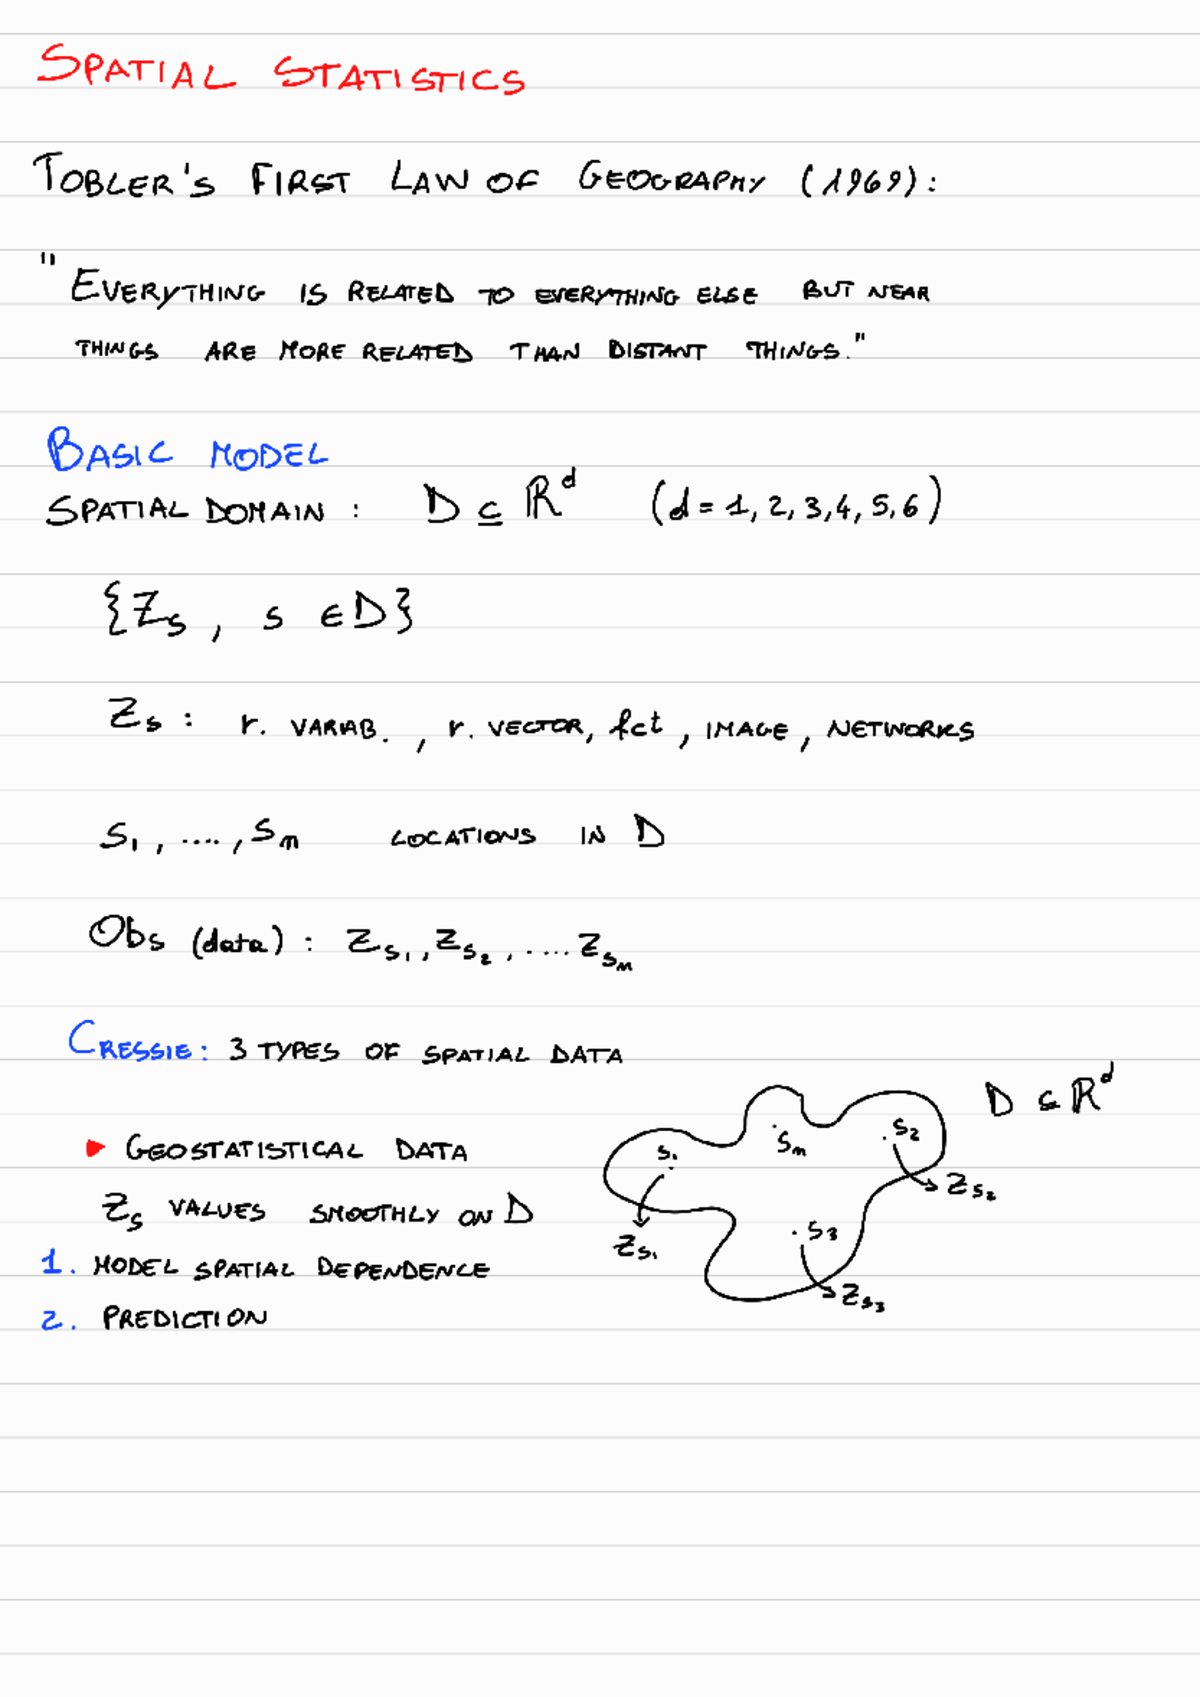 SPATIAL STATISTICS
TOBLER'S FIRST LAW OF GEOGRAPHY (1969):
"EVERYTHING IS RELATED TO EVERYTHING ELSE BUT NEAR
THINGS ARE MORE RELATED THAN DISTANT THINGS."
BASIC MODEL
SPATIAL DOMAIN : D ⊆ ℝᵈ (d = 1, 2, 3, 4, 5, 6)
{Zₛ , s ∈ D}
Zₛ : r. VARIAB. , r. VECTOR, fct , IMAGE , NETWORKS
S₁ , .... , Sₙ LOCATIONS IN D
Obs (data) : Z_S₁ , Z_S₂ , .... Z_Sₙ
CRESSIE: 3 TYPES OF SPATIAL DATA
D ⊆ ℝᵈ
▶ GEOSTATISTICAL DATA
Zₛ VALUES SMOOTHLY ON D
1. MODEL SPATIAL DEPENDENCE
2. PREDICTION
S₁ Sₙ S₂
Z_S₂
S₃
Z_S₁
Z_S₃